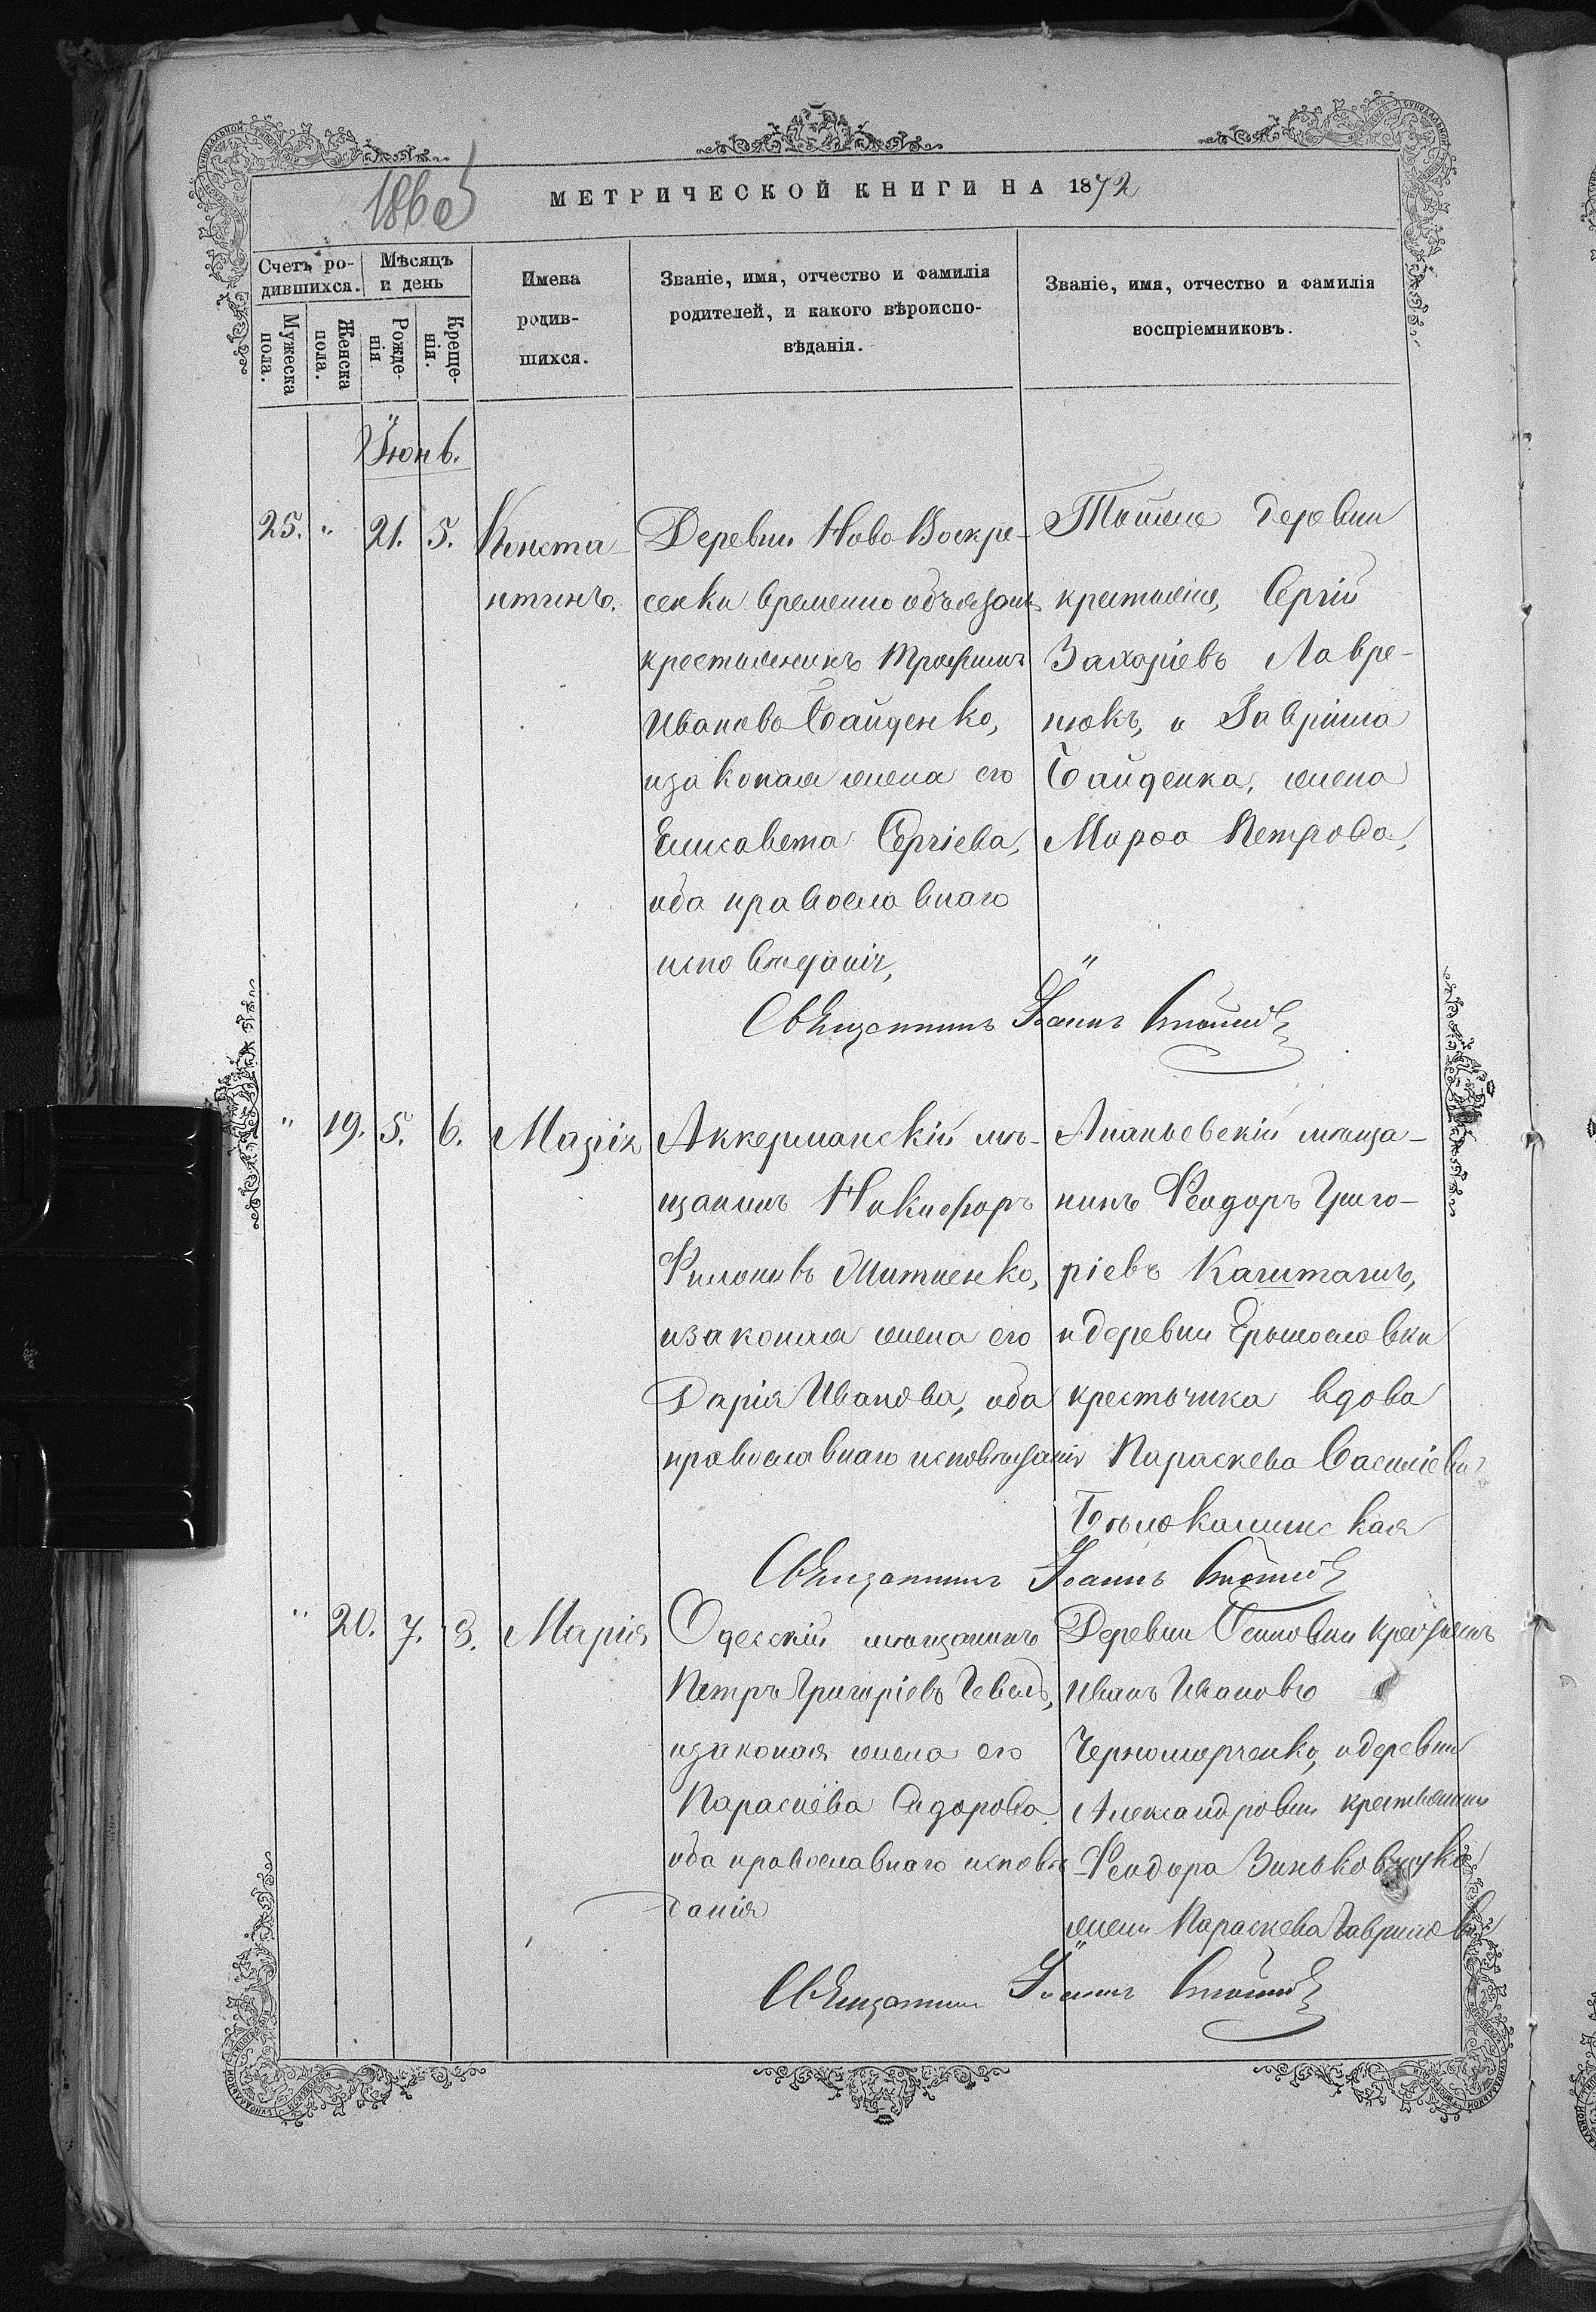 МЕТРИЧЕСКОЙ КНИГИ НА 1872
Счетъ ро-
дившихся.
Мужеска
пола.
Женска
пола.
Мѣсяцъ
и день
Рожде-
нія
Креще-
нія.
Имена
родив-
шихся.
Званіе, имя, отчество и фамилія
родителей, и какого вѣроиспо-
вѣданія.
Званіе, имя, отчество и фамилія
воспріемниковъ.
Іюнь.
25. " 21. 5.
Конста-
нтинъ.
Деревни Ново Воскре-
сенки временно обязан.
крестьянинъ Трофимъ
Ивановъ Байденко,
изаконая жена его
Елисавета Сергіева,
оба православнаго
исповѣданія,
Тойже деревни
крестьяне, Сергій
Захаріевъ Лавре-
нюкъ, и Гавріила
Байденка, жена
Марѳа Петрова,
Священникъ Іоаннъ
" 19. 5. 6.
Марія
Аккерманскій мѣ-
щанинъ Никифоръ
Филоновъ Митненко,
изаконая жена его
Дарія Иванова, оба
православнаго исповѣданія
Ананьевскій мѣща-
нинъ Феодоръ Григо-
ріевъ Каштанъ,
идеревни Ермославки
крестьянка вдова
Параскева Василіева
Бѣлокаминская
Священникъ Іоаннъ
" 20. 7. 8.
Марія
Одесскій мѣщанинъ
Петръ Григоріевъ
изаконая жена его
Параскева Сидорова
оба православнаго исповѣ
данія
Деревни Осиповки
Иванъ Ивановъ
Черноморченко, идеревни
Александровки крестьянина
Феодора
жена Параскева Гаврилова
Священникъ Іоаннъ